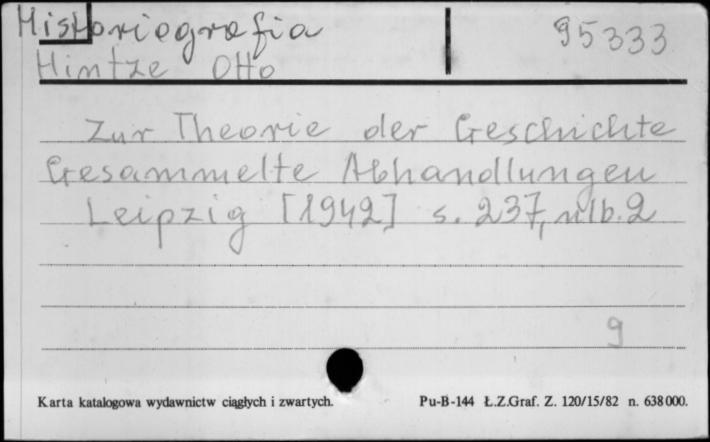 Historiografia 95333
Hintze Otto
Zur Theorie der Geschichte
Gesammelte Abhandlungen
Leipzig [1942] s. 237, nlb. 2
9
Karta katalogowa wydawnictw ciągłych i zwartych. Pu-B-144 Ł.Z.Graf. Z. 120/15/82 n. 638000.